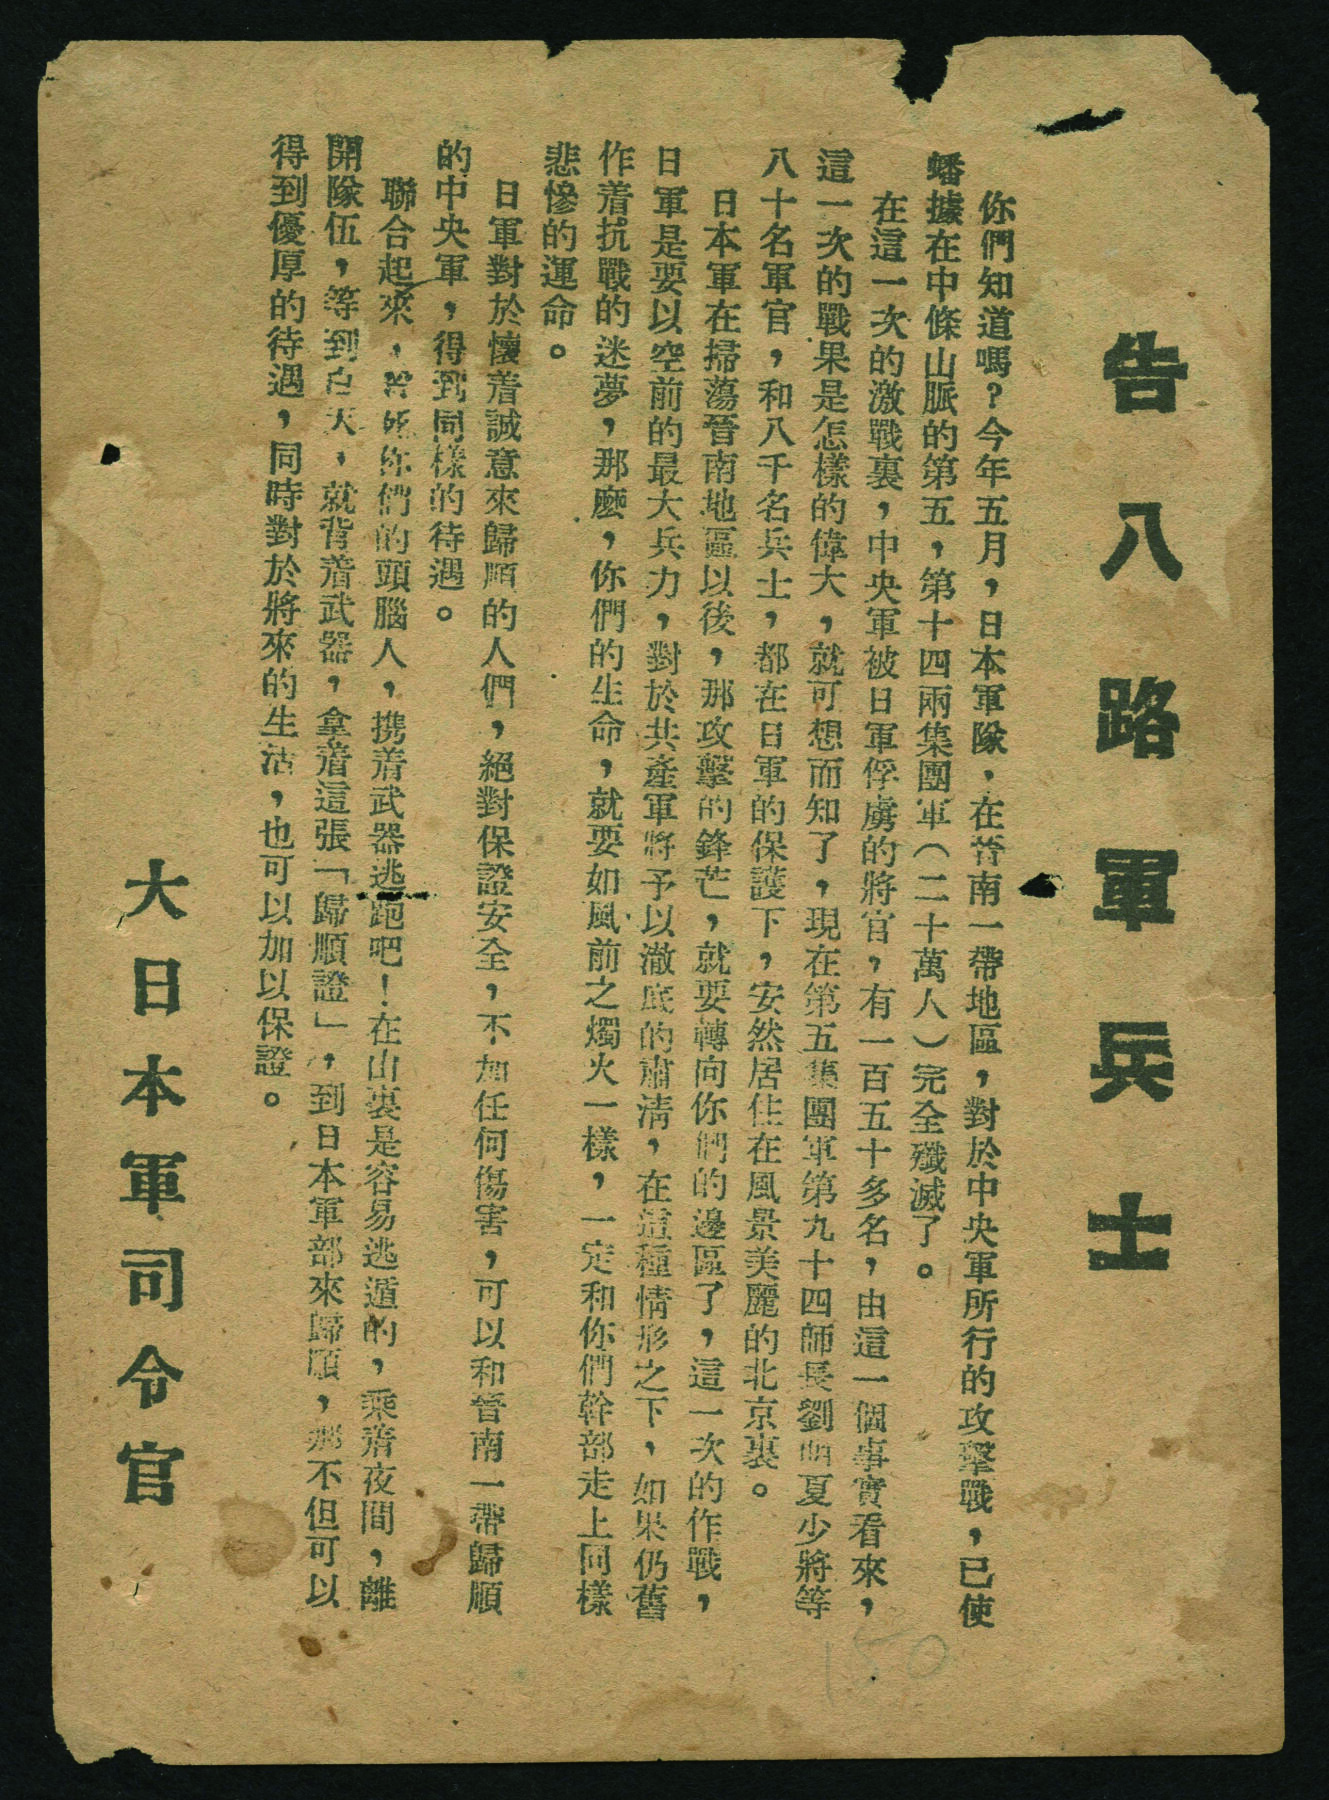 告八路軍兵士
你們知道嗎?今年五月,日本軍隊,在晉南一帶地區,對於中央軍所行的攻擊戰,已使
蟠據在中條山脈的第五,第十四兩集團軍(二十萬人)完全殲滅了。
在這一次的激戰裏,中央軍被日軍俘虜的將官,有一百五十多名,由這一個事實看來,
這一次的戰果是怎樣的偉大,就可想而知了,現在第五集團軍第九十四師長劉明夏少將等
八十名軍官,和八千名兵士,都在日軍的保護下,安然居住在風景美麗的北京裏。
日本軍在掃蕩晉南地區以後,那攻擊的鋒芒,就要轉向你們的邊區了,這一次的作戰,
日軍是要以空前的最大兵力,對於共產軍將予以澈底的肅清,在這種情形之下,如果仍舊
作着抗戰的迷夢,那麼,你們的生命,就要如風前之燭火一樣,一定和你們幹部走上同樣
悲慘的運命。
日軍對於懷着誠意來歸順的人們,絕對保證安全,不加任何傷害,可以和晉南一帶歸順
的中央軍,得到同樣的待遇。
聯合起來,死你們的頭腦人,携着武器逃跑吧!在山裏是容易逃遁的,乘着夜間,離
開隊伍,等到白天,就背着武器,拿着這張「歸順證」,到日本軍部來歸順,那不但可以
得到優厚的待遇,同時對於將來的生活,也可以加以保證。
大日本軍司令官
150